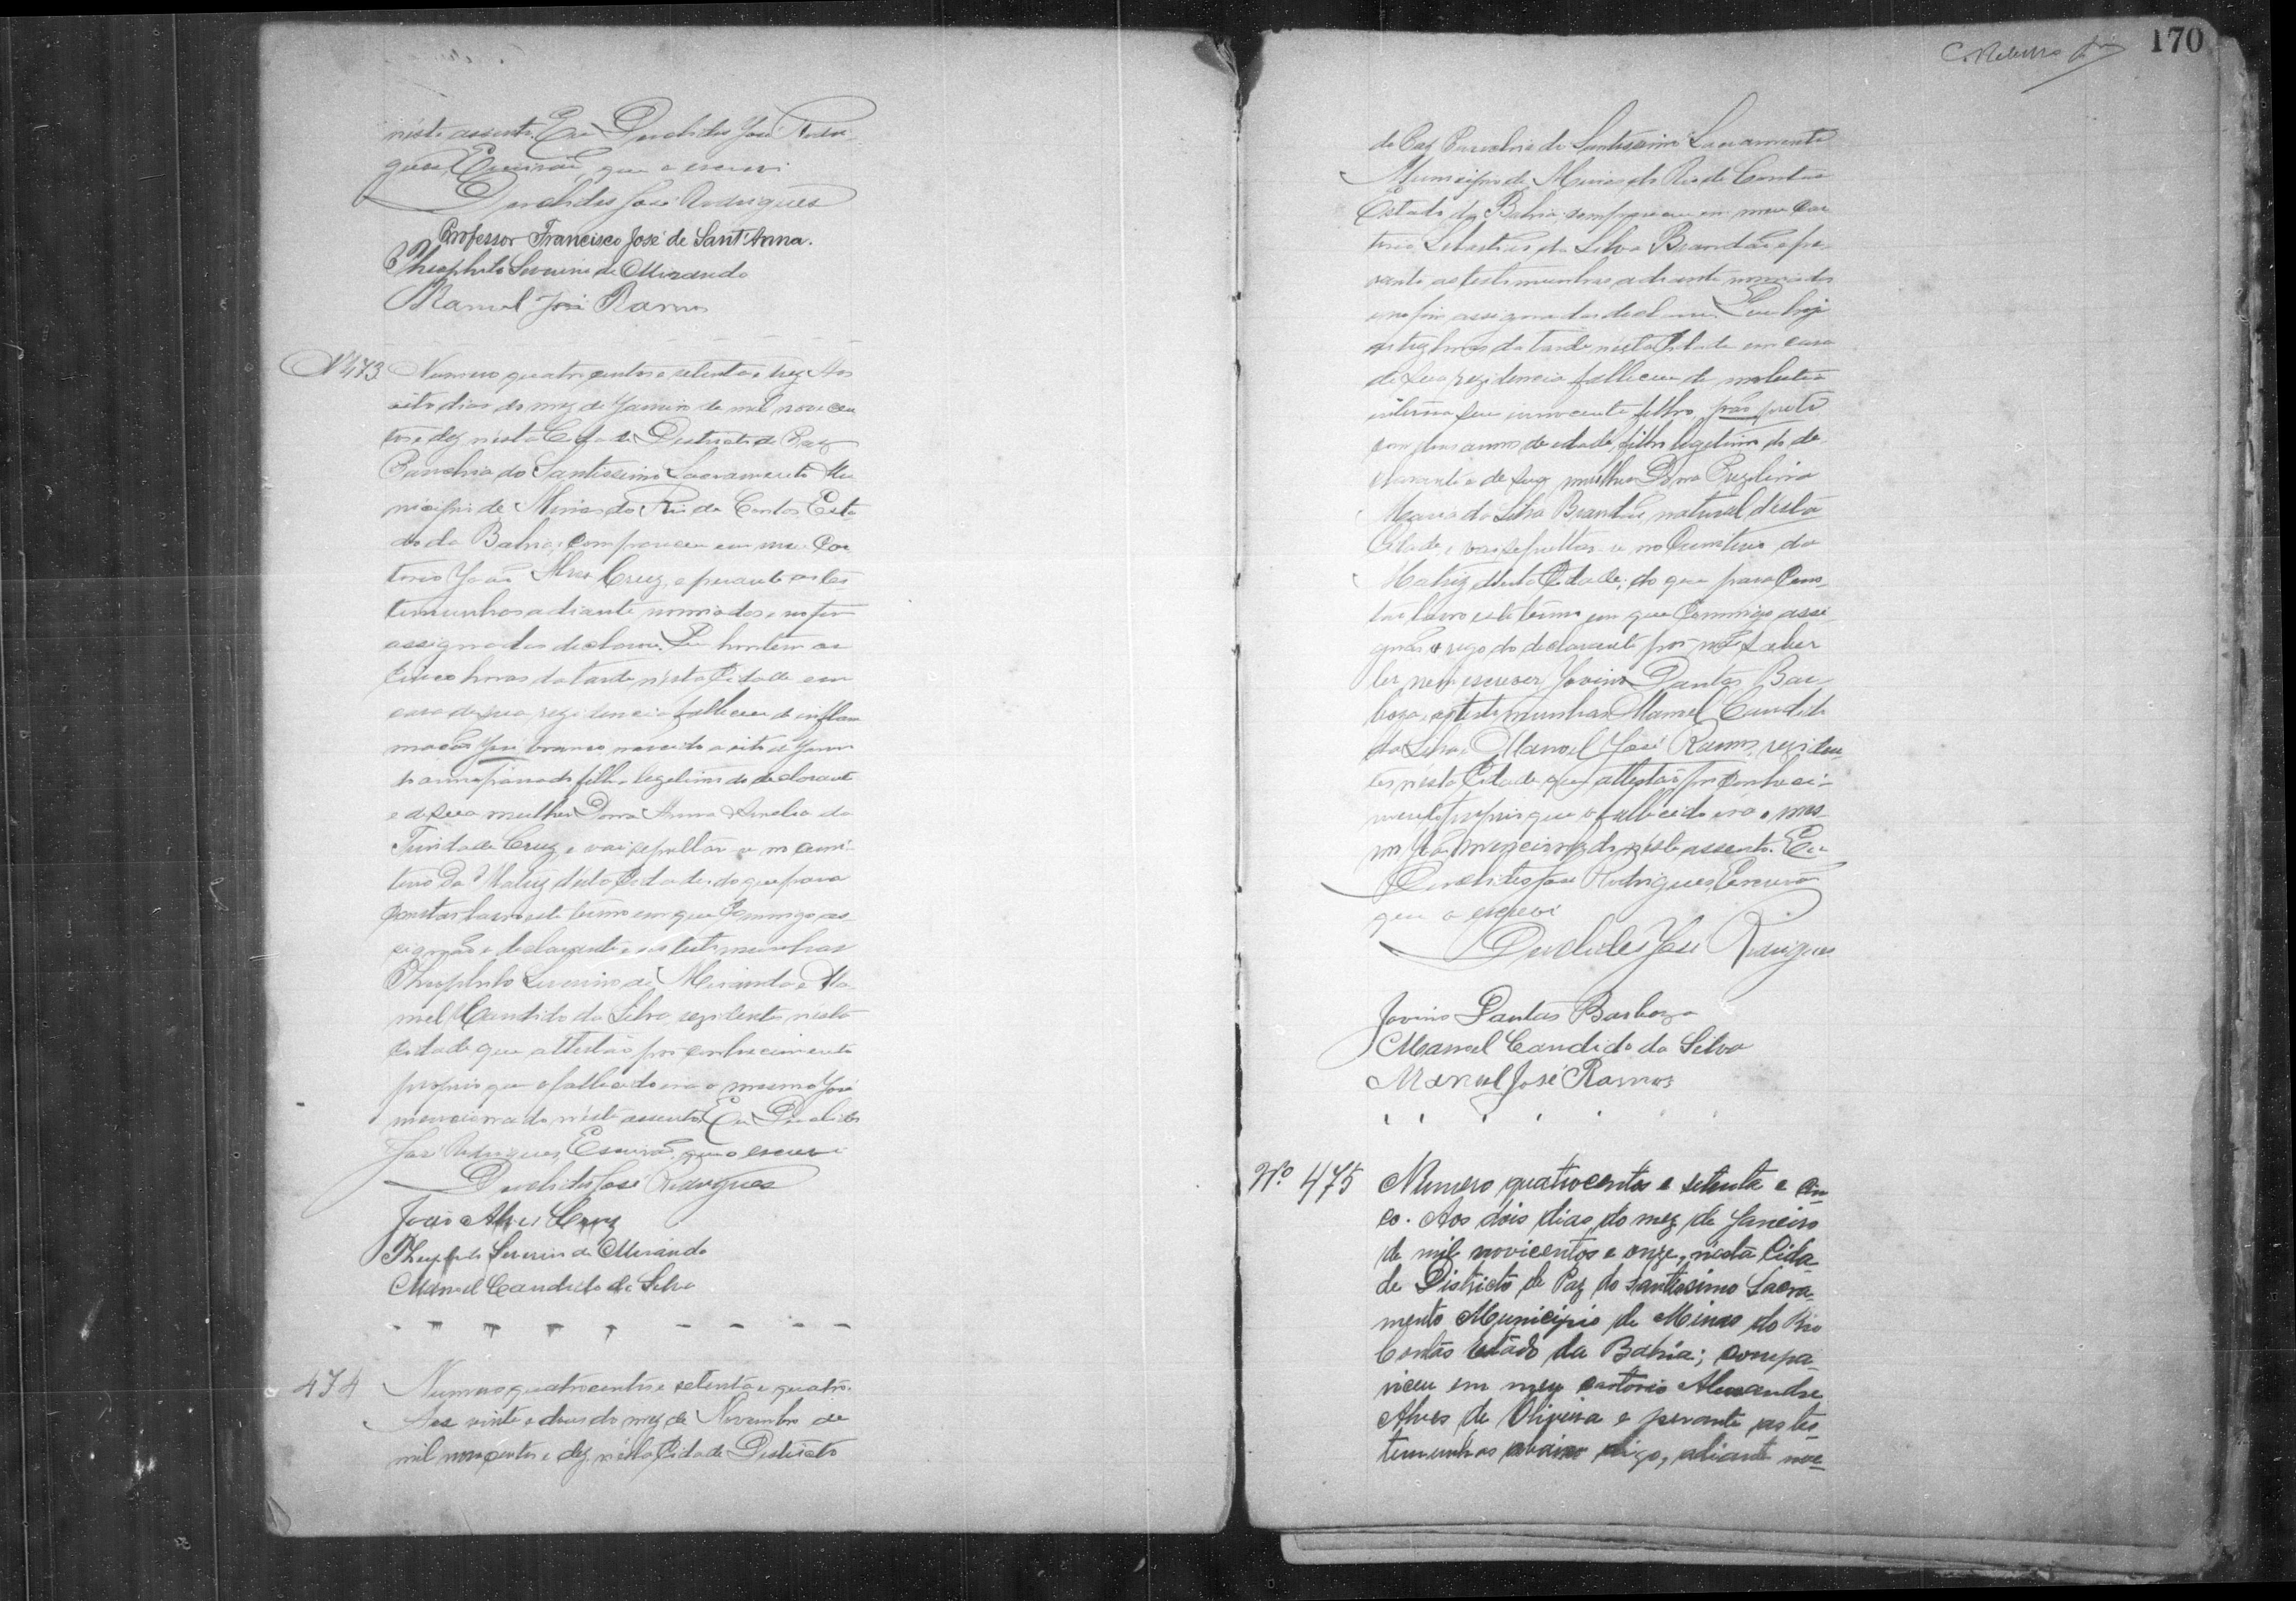 neste assento. Eu Euclides José Rodri-
gues, Escrivão que o escrevi
Euclides José Rodrigues
Professor Francisco José de Sant'Anna.
Theophilo Severino de Miranda
Manoel José Ramos
Nº 473 Numero quatro centos e setenta e trez. Aos
oito dias do mez de Janeiro de mil novecen
tos e dez, nésta Cidade Districto de Paz
Parochia do Santissimo Sacramento Mu
nicipio de Minas do Rio de Contas Esta
do da Bahia, compareceu em meu Car
torio João Alves Cruz, e perante as tes
temunhas adiante nomiadas e no fim
assignadas declarou: Que hontem as
cinco horas da tarde nésta Cidade em
casa de sua rezidencia falleceu de inflam
mação José, branco, nascido a oito de Janei
ro anno passado filho legitimo do declarante
e de sua mulher Dona Anna Amelia da
Trindade Cruz, e vai sepultar-se no cemi
terio da Matriz désta Cidade; do que para
constar lavro este termo em que commigo as
signão o declarante e as testemunhas
Theophilo Severino de Miranda e Ma
noel Candido da Silva, rezidentes nesta
cidade que attestão por conhecimento
proprio que o fallecido era o mesmo José
mencionado néste assento. Eu Euclides
José Rodrigues, Escrivão, que o escrevi
Euclides José Rodrigues
João Alves Cruz
Theophilo Severino de Miranda
Manoel Candido da Silva
474 Numero quatrocentos e setenta e quatro.
Aos vinte e dous do mez de Novembro de
mil novecentos e dez, nésta Cidade Districto
170
de Paz Parochia do Santissimo Sacramento
Municipio de Minas do Rio de Contas
Estado da Bahia compareceu em meu Car
torio Sebastião da Silva Brandão e pe-
rante as testemunhas adiante nomiadas
e no fim assignadas declarou: Que hoje
as trez horas da tarde nésta Cidade em casa
de sua rezidencia falleceu de molestia
interna seu innocente filho João, preto
com dous annos de edade, filho legitimo do de-
clarante e de sua mulher Dona
Maria da Silva Brandão, natural désta
Cidade, e vai sepultar-se no Cemiterio da
Matriz désta Cidade; do que para Cons-
tar lavro este termo em que Commigo assi
gnão a rogo do declarante por não saber
ler nem escrever Jovino Dantas Bar-
boza, as testemunhas Manoel Candido
da Silva e Manoel José Ramos, reziden-
tes nésta Cidade que attestão por conheci-
mento proprio que o fallecido era o mes-
mo João mencionado néste assento. Eu
Euclides José Rodrigues, Escrivão
que o escrevi
Euclides José Rodrigues
Jovino Dantas Barboza
Manoel Candido da Silva
Manoel José Ramos
Nº 475 Numero quatrocentos e setenta e cin-
co. Aos dois dias do mez de Janeiro
de mil novicentos e onze, nésta Cida-
de Districto de Paz do Santissimo Sacra-
mento Municipio de Minas do Rio
Contas Estado da Bahia; compa-
riceu em meu cartorio Alexandre
Alves de Oliveira e perante as tes-
temunhas abaixo digo, adiante noe-